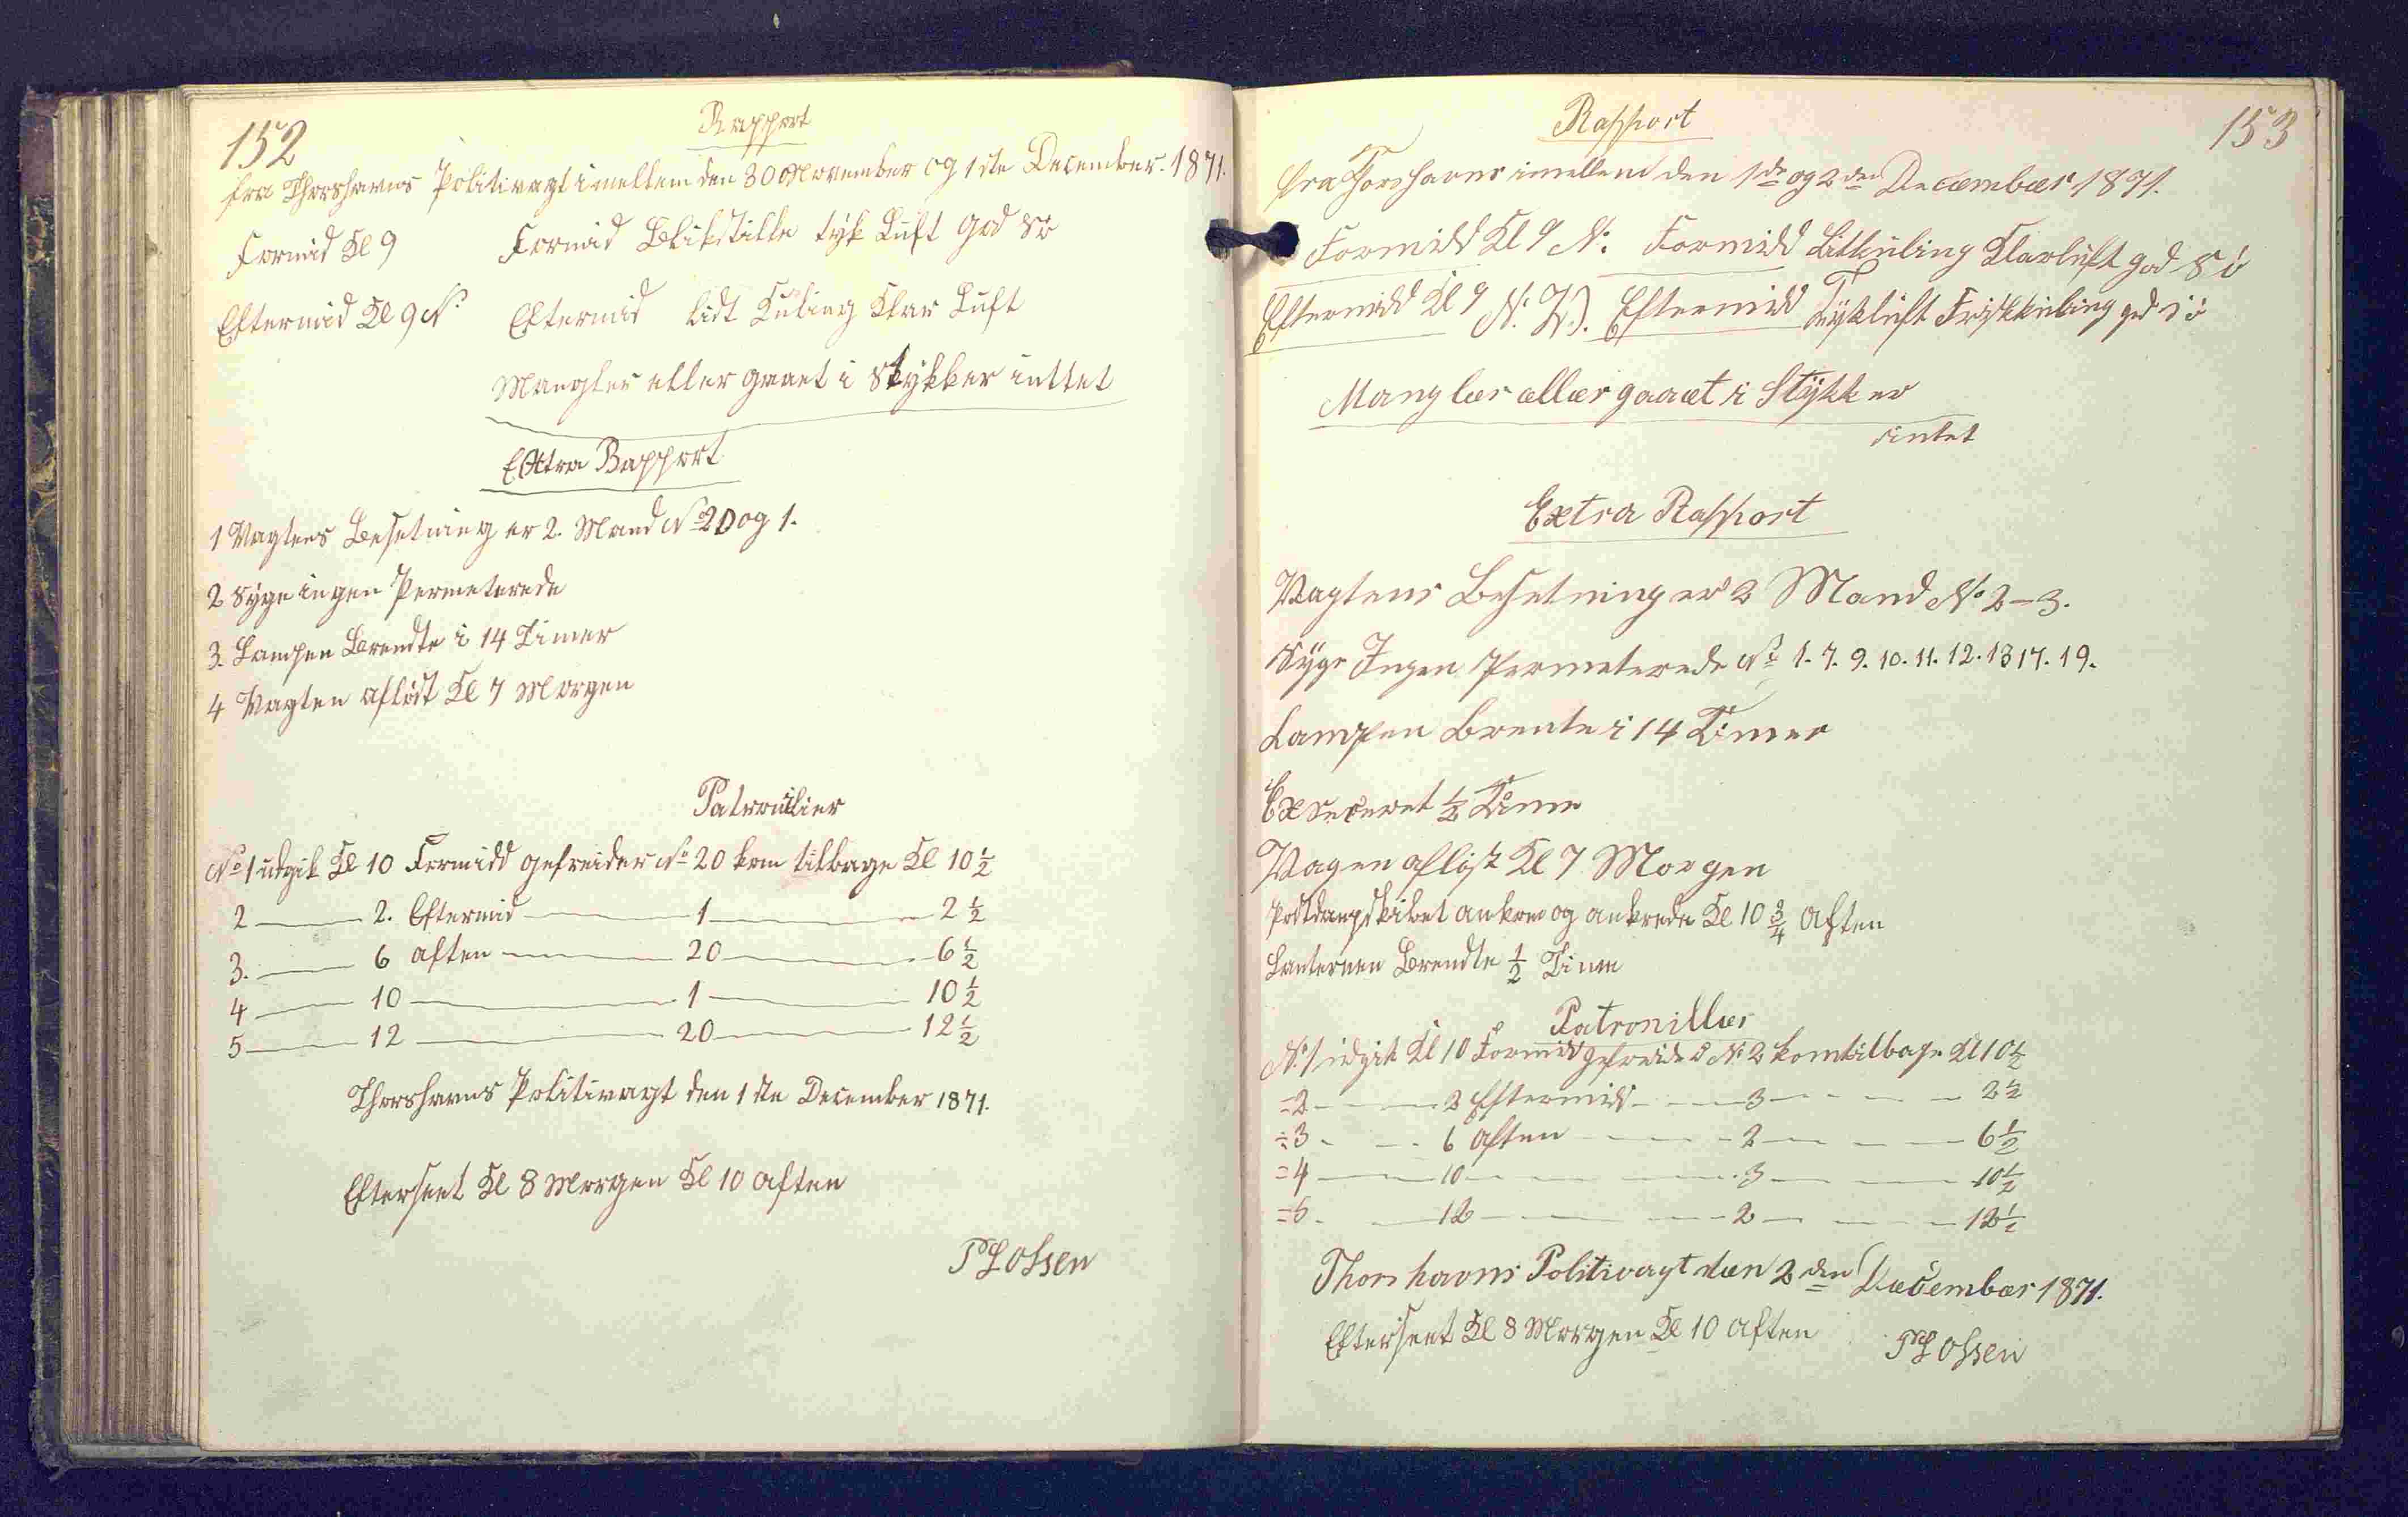 152
Rapport
fra Thorshavns Politivagt imellem den 30 November og 1ste December 1871.
Formid Kl 9 Formid Blikstille tyk Luft god Sö
Eftermid Kl 9 N. Eftermid lidt Kuling Klar Luft
Mangler eller gaaet i Stykker inttet
Extra Rapport
1 Vagtens Besetning er 2. Mand No 20 og 1.
2 Syge ingen Permeterede
3. Lampen Brendte i 14 Timer
4 Vagten aflöst Kl 7 Morgen
Patrouilier
No 1 udgik Kl 10 Formidd gefreider No 20 kom tilbage Kl 10 1/2
2 — 2. Eftermid — 1 — 2 1/2
3. — 6 aften — 20 — 6 1/2
4 — 10 — 1 — 10 1/2
5 — 12 — 20 — 12 1/2
Thorshavns Politivagt den 1ste December 1871.
Efterseet Kl 8 Morgen Kl 10 aften
Olsen
153
Rapport
fra Torshavns imellem den 1de og 2den Decæmbær 1871.
Formidd Kl 9 N. Formidd Litkuling Klarluft god Sö
Eftermidd Kl 9 N. W. Eftermidd Tykluft Friskkuling god Sö
Manglær ællær gaaæt i Stykker
intet
Extra Rapport
Vagtens Besetning er 2 Mand No 2-3.
Syge Ingen Permeterede No 1. 7. 9. 10. 11. 12. 13 17. 19.
Lampen Brente i 14 Timer
Exseseret 1/2 Time
Vagen aflöst Kl 7 Morgen
Postdampskibet ankom og ankrede Kl 10 3/4 Aften
Lanternen Brendte 1/2 Time
Patronillær
No 1 udgik Kl 10 Formidd gefreider No 2 kom tilbage Kl 10 1/2
=2 — 2 Eftermidd — 3 — 2 1/2
=3 — 6 aften — 2 — 6 1/2
=4 — 10 — 3 — 10 1/2
=5 — 12 — 2 — 12 1/2
Thorshavns Politivagt dæn 2den Dæcembær 1871.
Efterseet Kl 8 Morgen Kl 10 aften
Olsen